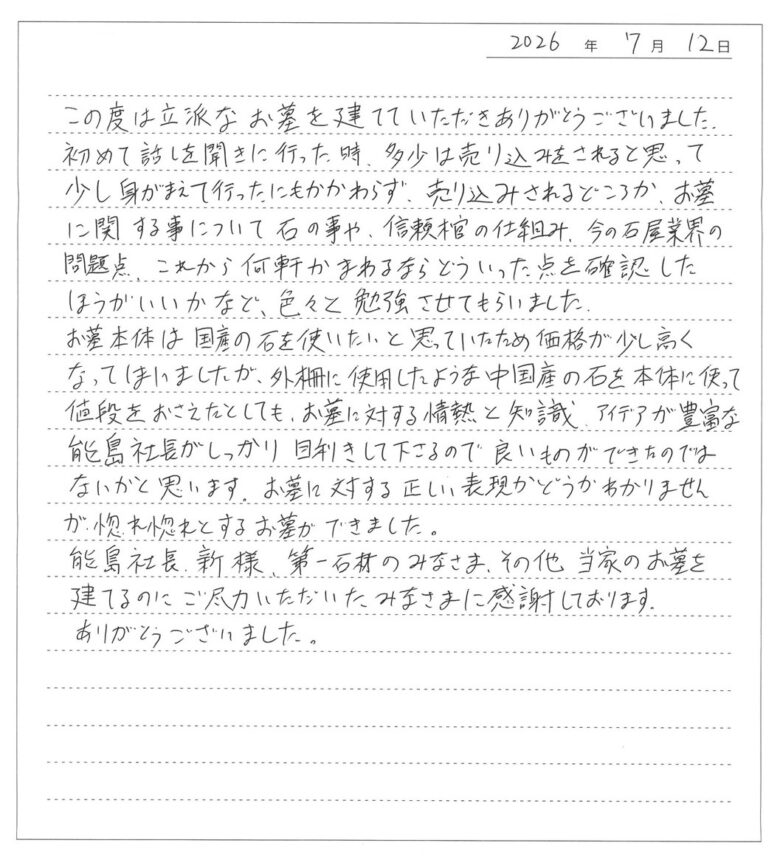 2026 年 7 月 12 日
この度は立派なお墓を建てていただきありがとうございました.
初めて話しを聞きに行った時、多少は売り込みをされると思って
少し身がまえて行ったにもかかわらず、売り込みされるどころか、お墓
に関する事について石の事や、信頼棺の仕組み、今の石屋業界の
問題点、これから何軒かまわるならどういった点を確認した
ほうがいいかなど、色々と勉強させてもらいました.
お墓本体は国産の石を使いたいと思っていたため価格が少し高く
なってしまいましたが、外柵に使用したような中国産の石を本体に使って
値段をおさえたとしても、お墓に対する情熱と知識、アイデアが豊富な
能島社長がしっかり目利きして下さるので良いものができたのでは
ないかと思います. お墓に対する正しい表現かどうかわかりません
が、惚れ惚れとするお墓ができました。
能島社長、新様、第一石材のみなさま、その他当家のお墓を
建てるのにご尽力いただいたみなさまに感謝しております.
ありがとうございました。